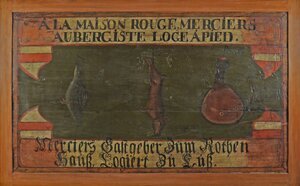 A LA MAISON ROUGE, MERCIERS
AUBERGISTE LOGE A PIED.
Merciers Gastgeber Zum Rothen
Hauß. Logiert Zu Fuß.